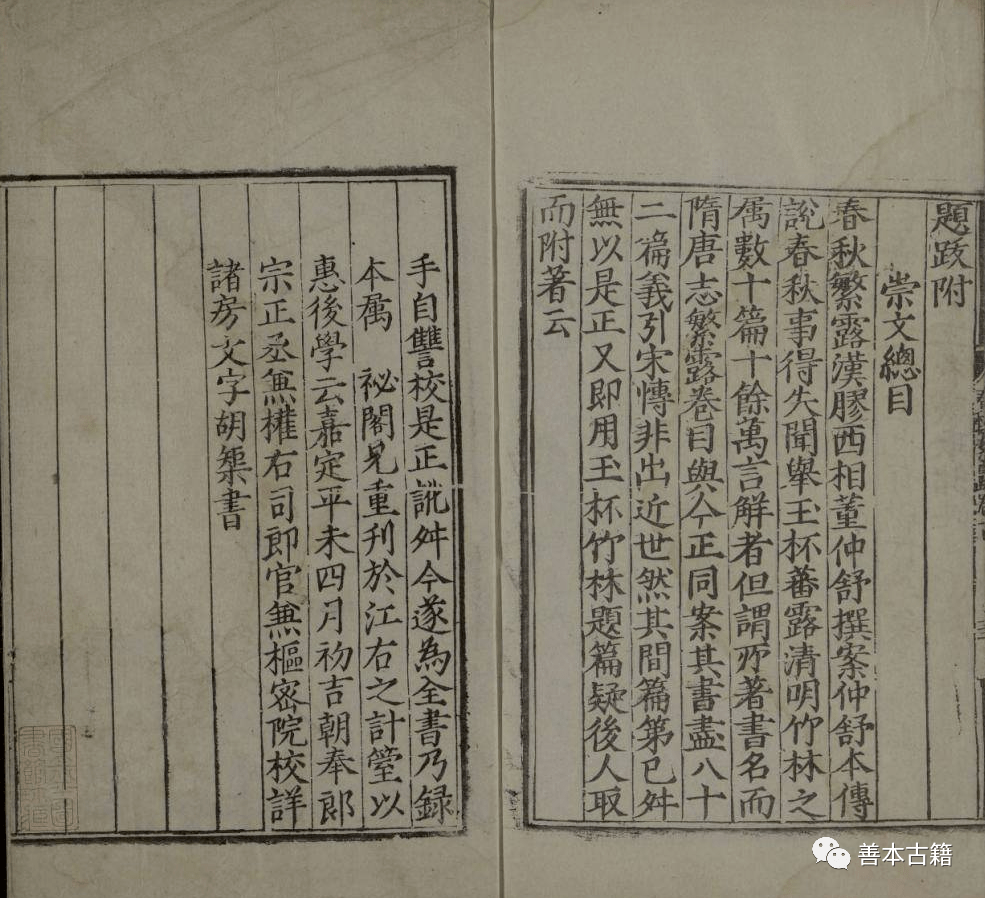 題䟦附
崇文總目
春秋繁露漢膠西相董仲舒撰案仲舒本傳
說春秋事得失聞舉玉杯蕃露清明竹林之
属數十篇十餘萬言解者但謂所著書名而
隋唐志繁露卷目與今正同案其書盡八十
二篇義引宋愽非出近世然其間篇第已舛
無以是正又即用玉杯竹林題篇疑後人取
而附著云
手自讐校是正訛舛今遂為全書乃録
本属 祕閣兄重刊於江右之計䑓以
惠後學云嘉定平未四月初吉朝奉郎
宗正丞兼權右司郎官兼樞密院校詳
諸房文字胡榘書
善本古籍